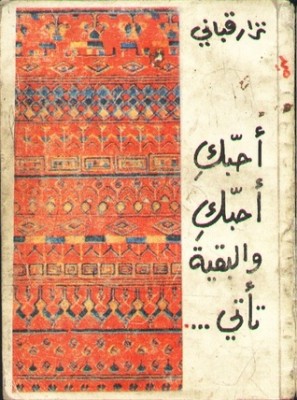 نزار قباني
أحبّكِ
أحبّكِ
والبقية
تأتي ....